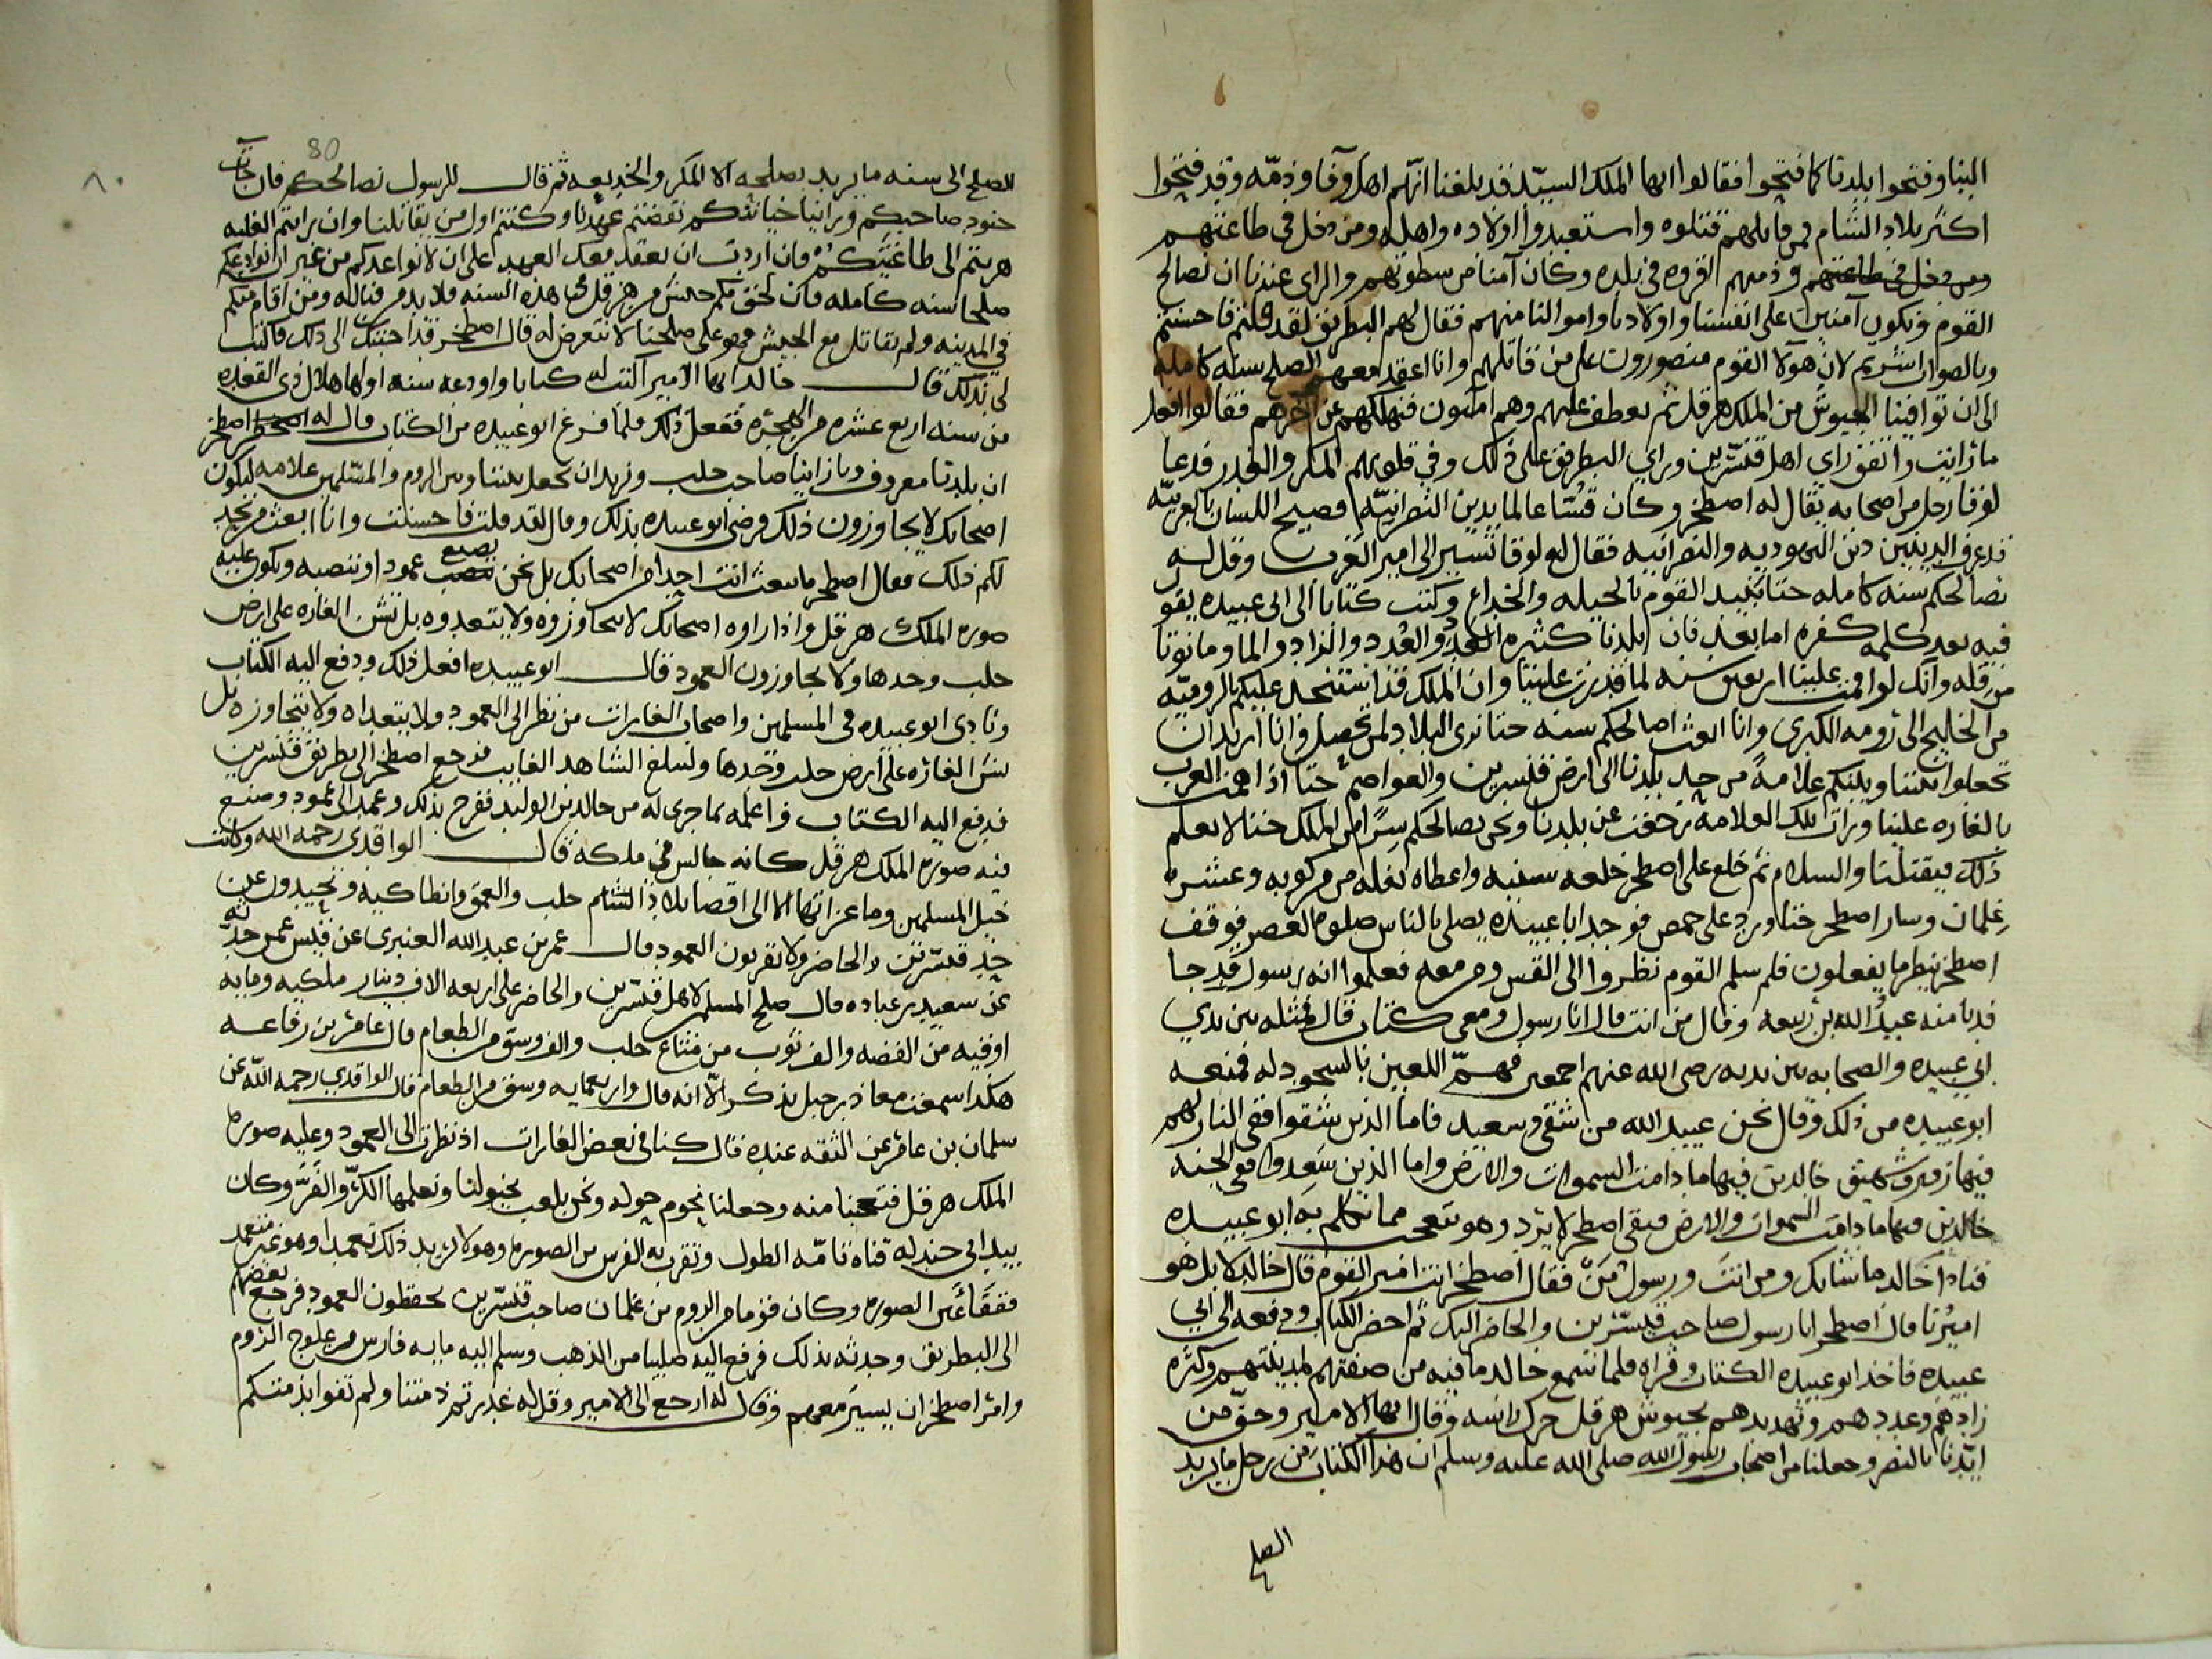 الينا وفتحوا بلدتنا كما فتحوا فقالوا ايها الملك السيد قد بلغنا انهم اهل وفا وذمه وقد فتحوا
اكثر بلاد الشام فمن قاتلهم قتلوه واستعبدوا اولاده واهله ومن دخل في طاعتهم
ومن دخل في طاعتهم وذمتهم اقروه في بلده وكان آمنا من سطوتهم والراي عندنا ان نصالح
القوم ونكون آمنين على انفسنا واولادنا واموالنا منهم فقال لهم البطريق لقد قلتم فاحسنتم
وبالصواب اشرتم لان هولا القوم منصورون على من قاتلهم وانا اعقد معهم الصلح سنه كامله
الى ان توافينا الجيوش من الملك هرقل ثم نعطف عليهم وهم آمنون فنهلكهم عن آخرهم فقالوا افعل
ما رايت واتفق راي اهل قنسرين وراي البطريق على ذلك وفي قلوبهم المكر والغدر فدعا
لوقا رجل من اصحابه يقال له اصطخر وكان قسا عالما بدين النصرانيه فصيح اللسان بالعربيه
قد عرف الدينين دين اليهوديه والنصرانيه فقال له لوقا تسير الى امير العرب وقل له
نصالحكم سنه كامله حتا نبيد القوم بالحيله والخداع وكتب كتابا الى ابي عبيده يقول
فيه بعد كلمه كفره اما بعد فان بلدنا كثيره العدد والعدد والزاد والما وما نوتا
من قله وانك لو اقمت علينا اربعين سنه لما قدرت علينا وان الملك قد استنجد عليكم بالروميه
من الخليج الى رومه الكبرى وانا ابعث اصالحكم سنه حتا نرى البلاد لمن تحصل وانا اريد ان
تجعلوا بيننا وبينكم علامة من حد بلدنا الى ارض قنسرين والعواصم حتا اذا همت العرب
بالغاره علينا ورات تلك العلامه زحفت عن بلدنا ونحن نصالحكم سرا من الملك حتا لا يعلم
ذلك فيقتلنا والسلام ثم خلع على اصطخر خلعه سنيه واعطاه بغله من مركوبه وعشره
غلمان وسار اصطخر حتا ورد على حمص فوجد ابا عبيده يصلي بالناس صلوه العصر فوقف
اصطخر ينظر ما يفعلون فلم سلم القوم نظروا الى القس ومن معه فعلموا انه رسول قد جا
فدنا منه عبد الله بن ربيعه وقال من انت قال انا رسول ومعي كتاب قال فمثله بين يدي
ابي عبيده والصحابه بين يديه رضي الله عنهم اجمعين فهمّ اللعين بالسجود له فمنعه
ابو عبيده من ذلك وقال نحن عبيد الله من شقي وسعيد فاما الذين شقوا ففي النار لهم
فيها زفير وشهيق خالدين فيها ما دامت السموات والارض واما الذين سعدوا ففي الجنه
خالدين فيها ما دامت السموات والارض فبقى اصطخر لا يرد وهو يتعجب مما تكلم به ابو عبيده
فناداه خالد ما شانك ومن انت ورسول مَن فقال اصطخر انت امير القوم قال خالد لا بل هو
اميرنا قال اصطخر انا رسول صاحب قنسرين والحاضر اليك ثم احضر الكتاب ودفعه الى ابي
عبيده فاخذ ابو عبيده الكتاب وقراه فلما سمع خالد ما فيه من صفتهم لمدينتهم وكثره
زادهم وعددهم وتهديدهم بجيوش هرقل حرك راسه وقال ايها الامير وحق من
ايدنا بالنصر وجعلنا من اصحاب رسول الله صلى الله عليه وسلم ان هذا الكتاب من رجل ما يريد
الصلح
80
٨٠
الصلح الى سنه ما يريد بصلحه الا المكر والخديعه ثم قال للرسول نصالحكم فان جات
جنود صاحبكم وراينا خيانتكم نقضتم عهدنا وكنتم اول من يقاتلنا وان رايتم الغلبه
هربتم الى طاغيتكم فان اردت ان نعقد معك العهد على ان لا نواعدكم من غير ان نوادعكم
صلحا سنه كامله فان لحق بكم جيش من هرقل في هذه السنه فلا بد من قتاله ومن اقام منكم
في المدينه ولم يقاتل مع الجيش فهو على صلحنا لا نتعرض له قال اصطخر قد اجبتك الى ذلك فاكتب
لي بذلك قال خالد ايها الامير اكتب له كتابا وادعه سنه اولها هلال ذي القعده
من سنه اربع عشره من الهجره ففعل ذلك فلما فرغ ابو عبيده من الكتاب قال له اصطخر
ان بلدتنا معروف وبازاينا صاحب حلب ونريد ان نجعل بيننا وبين الروم والمسلمين علامه ليكون
اصحابك لا يجاوزون ذلك فرضى ابو عبيده بذلك وقال لقد قلت فاحسنت وانا ابعث من يحد
لكم ذلك فقال اصطخر ما نبعث انت احدا من اصحابك بل نحن نصنع عمودا وننصبه ويكون عليه
صوره الملك هرقل واذا راوه اصحابك لا يتجاوزوه ولا يتعدوه بل تشن الغاره على ارض
حلب وحدها ولا يجاوزون العمود فقال ابو عبيده افعل ذلك ودفع اليه الكتاب
ونادى ابو عبيده في المسلمين واصحاب الغارات من نظر الى العمود ولا يتعداه ولا يتجاوزه بل
يشن الغاره على ارض حلب وحدها وليبلغ الشاهد الغايب فرجع اصطخر الى بطريق قنسرين
فدفع اليه الكتاب واعلمه بما جرى له من خالد بن الوليد ففرح بذلك وعمد الى عمود وصنع
فيه صوره الملك هرقل كانه جالس في ملكه قال الواقدي رحمه الله وكانت
خيل المسلمين وما غزاتها الا الى اقصا بلاد الشام حلب والعمق وانطاكيه ويحيدون عن
حد قنسرين والحاضر ولا يقربون العمود قال عمر بن عبد الله العنبري عن قيس عمن حدثه
عن سعيد بن عباده قال صلح المسلمين لاهل قنسرين والحاضر على اربعه الاف دينار ملكيه ومايه
اوقيه من الفضه والف ثوب من متاع حلب والف وسق من الطعام قال عامر بن رفاعه
هكذا سمعت معاذ بن جبل يذكر الا انه قال واربعمايه وسق من الطعام قال الواقدي رحمه الله عن
سلمان بن عامر عن الثقه عنده قال كنا في بعض الغارات اذ نظرت الى العمود وعليه صوره
الملك هرقل فتعجبنا منه وجعلنا نحوم حوله ونحن نلعب بخيولنا ونعلمها الكرّ والفرّ وكان
بيد ابي جندله قناه تامه الطول وتقرب به الفرس من الصوره وهو لا يريد ذلك تعمدا وهو غير متعمد
ففقا عين الصوره وكان قوما من الروم من غلمان صاحب قنسرين يحفظون العمود فرجع بعضهم
الى البطريق وحدثه بذلك فرفع اليه صليبا من الذهب وسلم اليه مايه فارس من علوج الروم
وامر اصطخر ان يسير معهم وقال له ارجع الى الامير وقل له غدرتم ذمتنا ولم تفوا بذمتكم